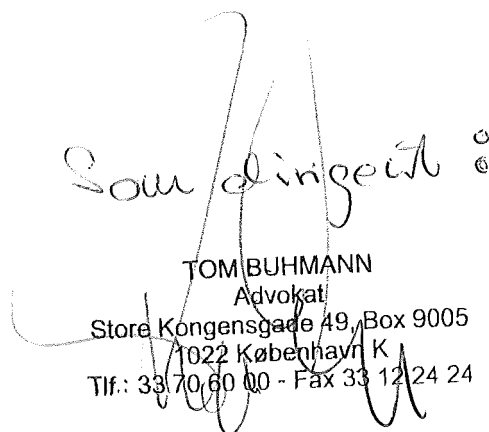 Som dirigent :
TOM BUHMANN
Advokat
Store Kongensgade 49, Box 9005
1022 København K
Tlf.: 33 70 60 00 - Fax 33 12 24 24